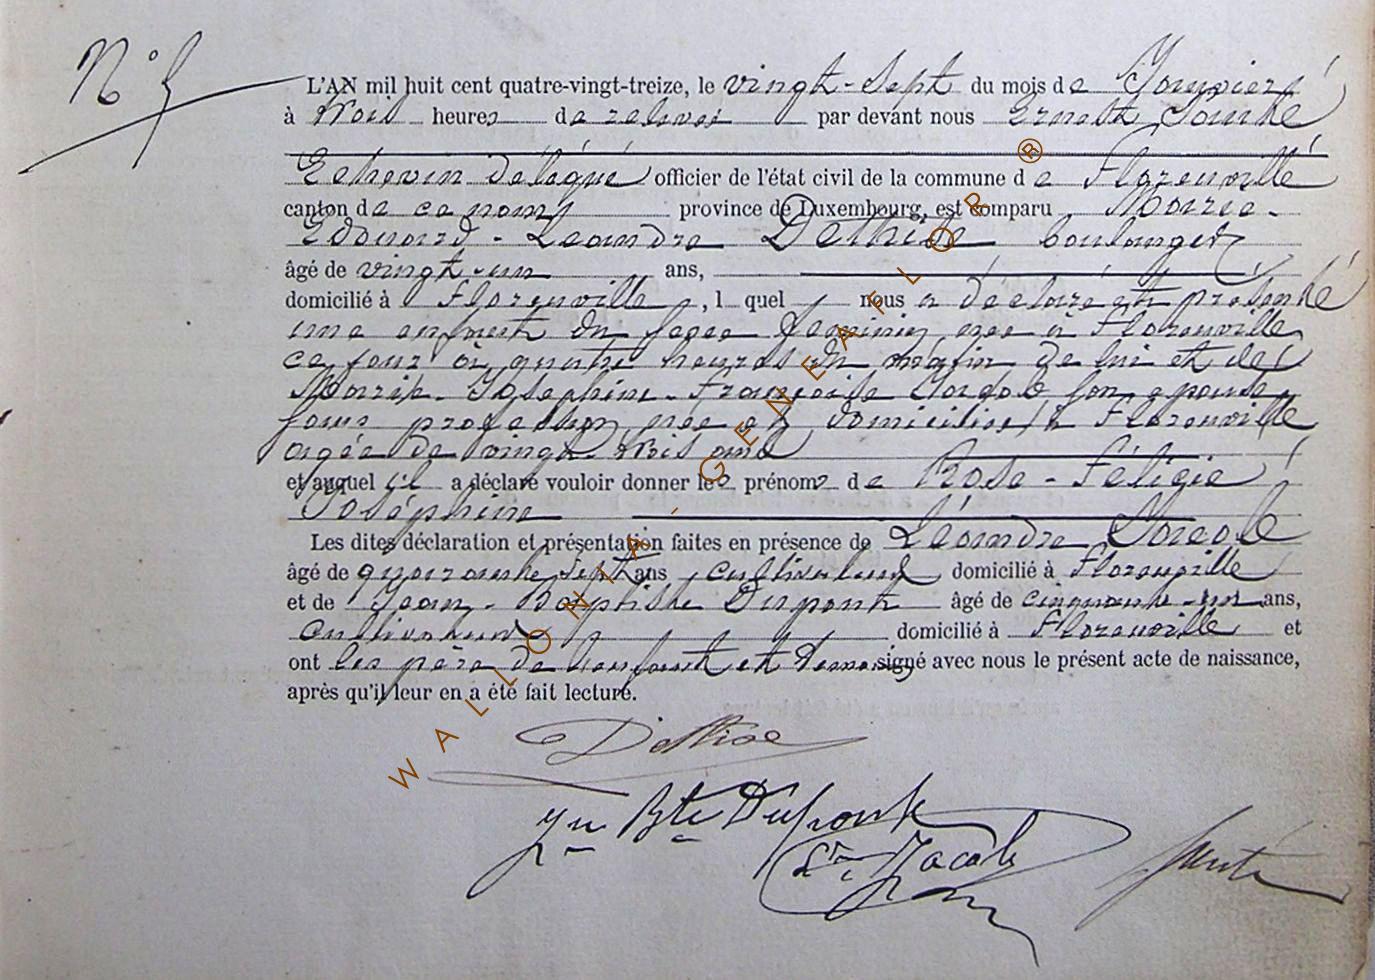 N° 5
L'AN mil huit cent quatre-vingt-treize, le vingt-sept du mois de Janvier
à trois heures de relevée par devant nous Ernest
Echevin délégué officier de l'état civil de la commune de Florenville
canton de ce nom, province de Luxembourg, est comparu Marie-
Edouard-Léandre Dethise boulanger
âgé de vingt-un ans,
domicilié à Florenville, lequel nous a déclaré et présenté
une enfant du sexe féminin, née à Florenville
ce jour à quatre heures du matin de lui et de
Marie-Joséphine-Françoise son épouse
sans profession née et domiciliée à Florenville
agée de vingt trois ans
et auquel il a déclaré vouloir donner les prénoms de Rose-Félicie
Joséphine
Les dites déclaration et présentation faites en présence de Léandre
âgé de quarante sept ans, cultivateur, domicilié à Florenville
et de Jean-Baptiste Dupont âgé de cinquante-un ans,
cultivateur domicilié à Florenville et
ont les père de l'enfant et témoins, signé avec nous le présent acte de naissance,
après qu'il leur en a été fait lecture.
Jn Bte Dupont
WALLONIA-GENEAFLOR®